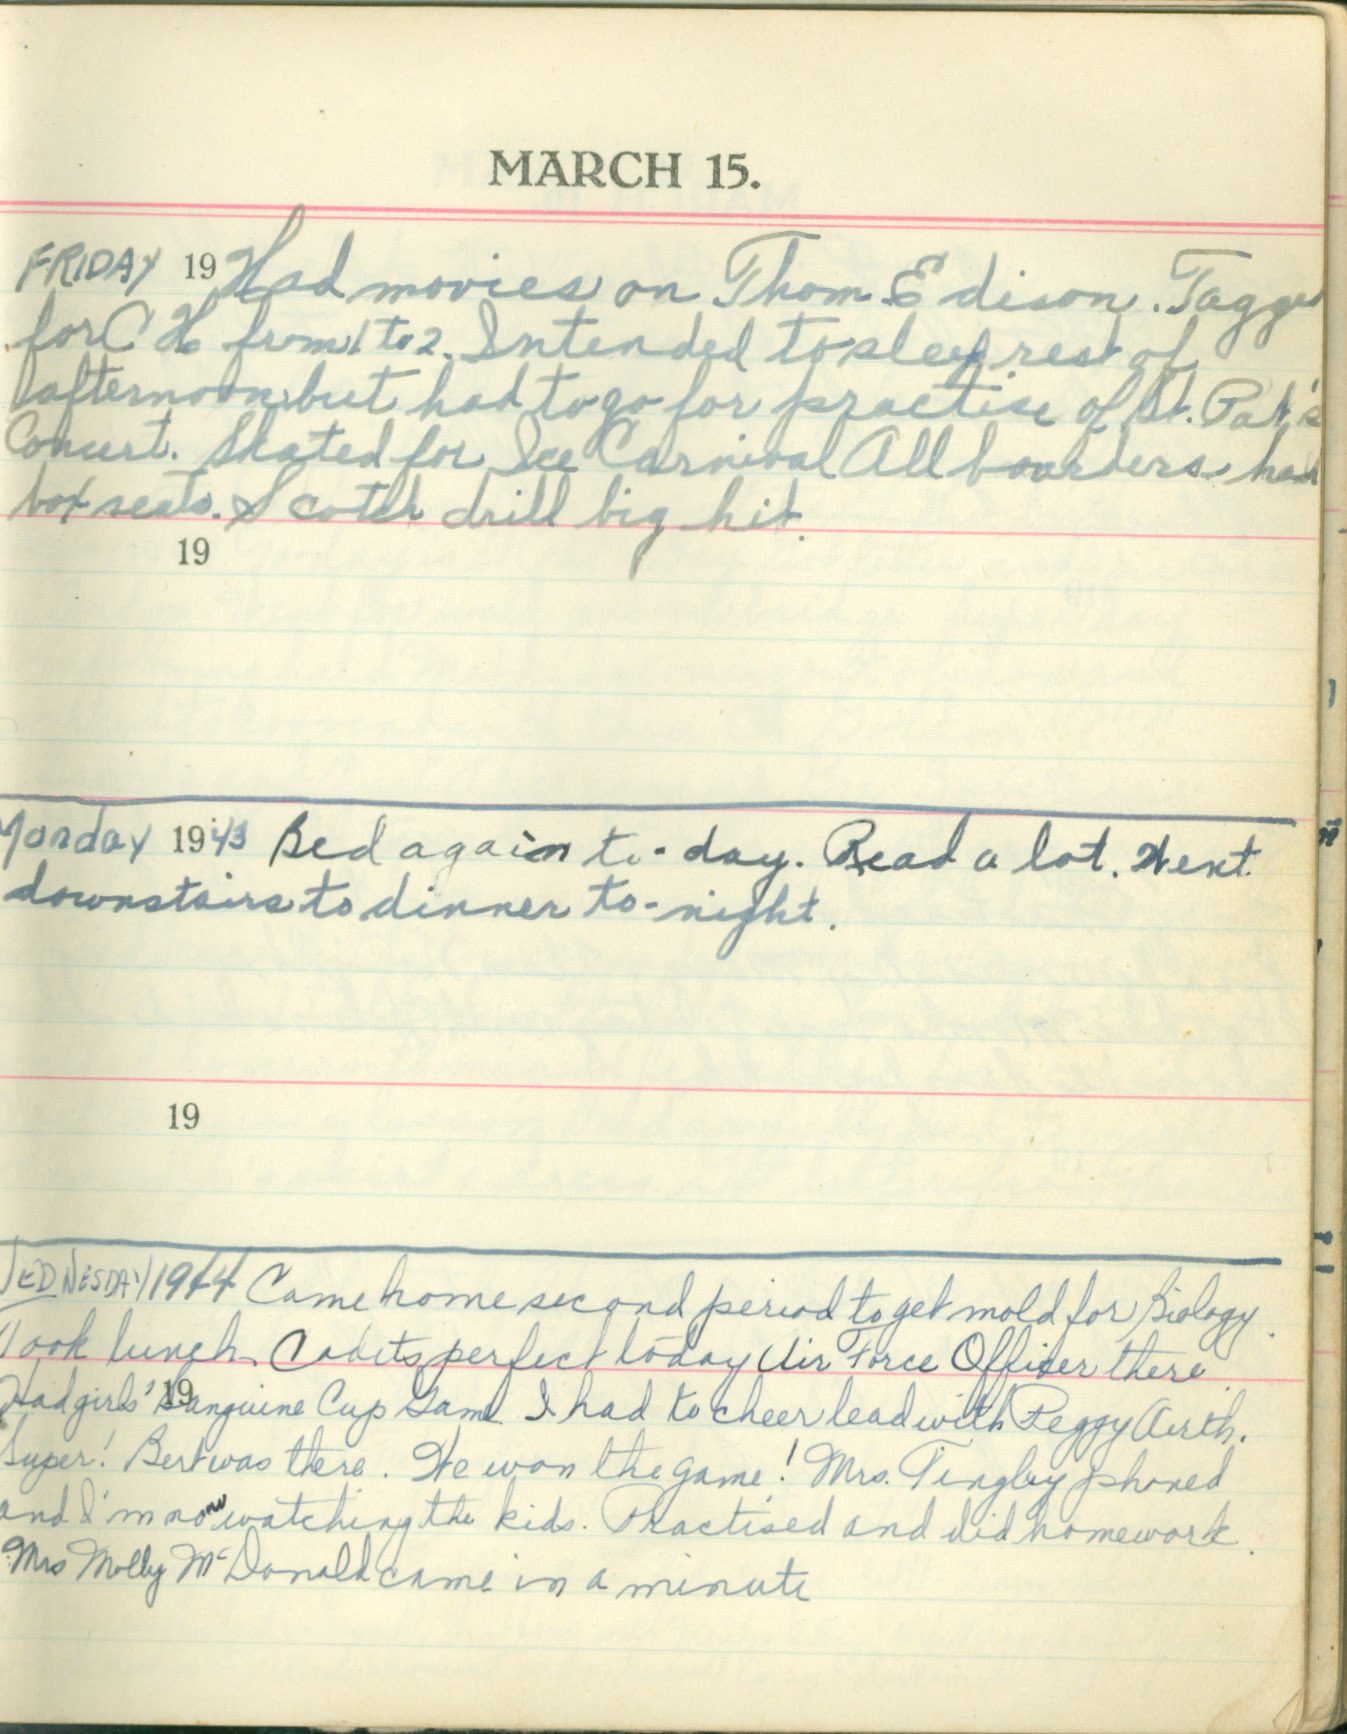 MARCH 15.
FRIDAY 19 Had movies on Thom. Edison. Tagged
for C H from 1 to 2. Intended to sleep rest of
afternoon but had to go for practise of St. Pat's
Concert. Skated for Ice Carnival All boarders had
box seats. Scotch drill big hit.
19
Monday 1943 Bed again to-day. Read a lot. Went
downstairs to dinner to-night.
19
WEDNESDAY 1944 Came home second period to get mold for Biology.
Took lunch. Cadets perfect today Air Force Officer there.
19
Had girls' Sanguine Cup Game. I had to cheer lead with Peggy Airth.
Super! Bert was there. We won the game! Mrs. Tingley phoned
and I'm now watching the kids. Practised and did homework.
Mrs Molly McDonald came in a minute